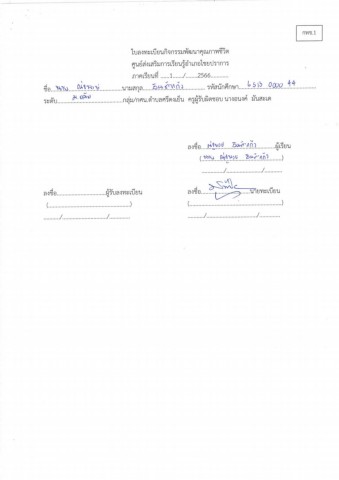 กพช.1
ใบลงทะเบียนกิจกรรมพัฒนาคุณภาพชีวิต
ศูนย์ส่งเสริมการเรียนรู้อำเภอไชยปราการ
ภาคเรียนที่ ......1....../......2566..............
ชื่อ นาย ณัฐพงษ์ นามสกุล อินต๊ะแก้ว รหัสนักศึกษา 6513 0000 44
ระดับ ม.ต้น กลุ่ม/กศน.ตำบลศรีดงเย็น ครูผู้รับผิดชอบ นางอนงค์
ลงชื่อ ณัฐพงษ์ อินต๊ะแก้ว ผู้เรียน
( นาย ณัฐพงษ์ อินต๊ะแก้ว )
............/................/............
ลงชื่อ..............................ผู้รับลงทะเบียน
ลงชื่อ..............................นายทะเบียน
(..........................................)
(..........................................)
............/................/............
............/................/............